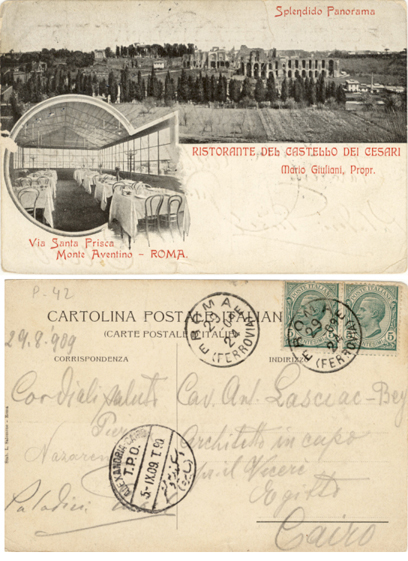 Splendido Panorama
RISTORANTE DEL CASTELLO DEI CESARI
Mario Giuliani, Propr.
Via Santa Prisca
Monte Aventino - ROMA.
P-42
CARTOLINA POSTALE ITALIANA
(CARTE POSTALE D'ITALIE)
29.8.909
CORRISPONDENZA
INDIRIZZO
ROMA
(FERROVIA)
ROMA
(FERROVIA)
POSTE ITALIANE
Cordiali saluti
Cav. Ant. Lasciac-Bey
Architetto in capo
Nazareno
Viceré
Paladini
Egitto
Cairo
ALEXANDRIA-CAIRO
T.P.O.
5-IX.09